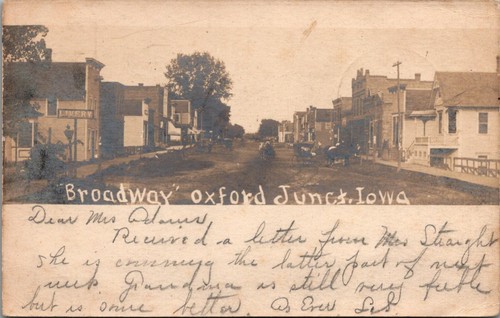 "Broadway" Oxford Junct. Iowa
Dear Mrs Adams
Received a letter from Mrs Straight
She is comming the latter part of next
week Grandma is still very feeble
but is some better. As Ever